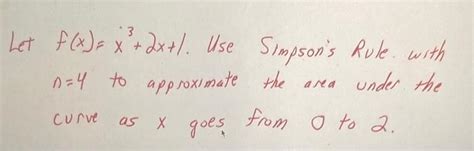 Let f(x)= x³+2x+1. Use Simpson's Rule. with
n=4 to approximate the area under the
curve as x goes from 0 to 2.